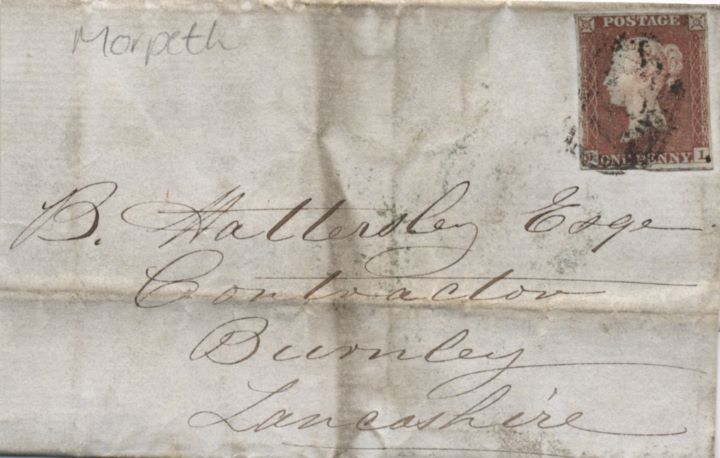 Morpeth
POSTAGE
ONE PENNY I
B. Hattersley Esqe
Contractor
Burnley
Lancashire